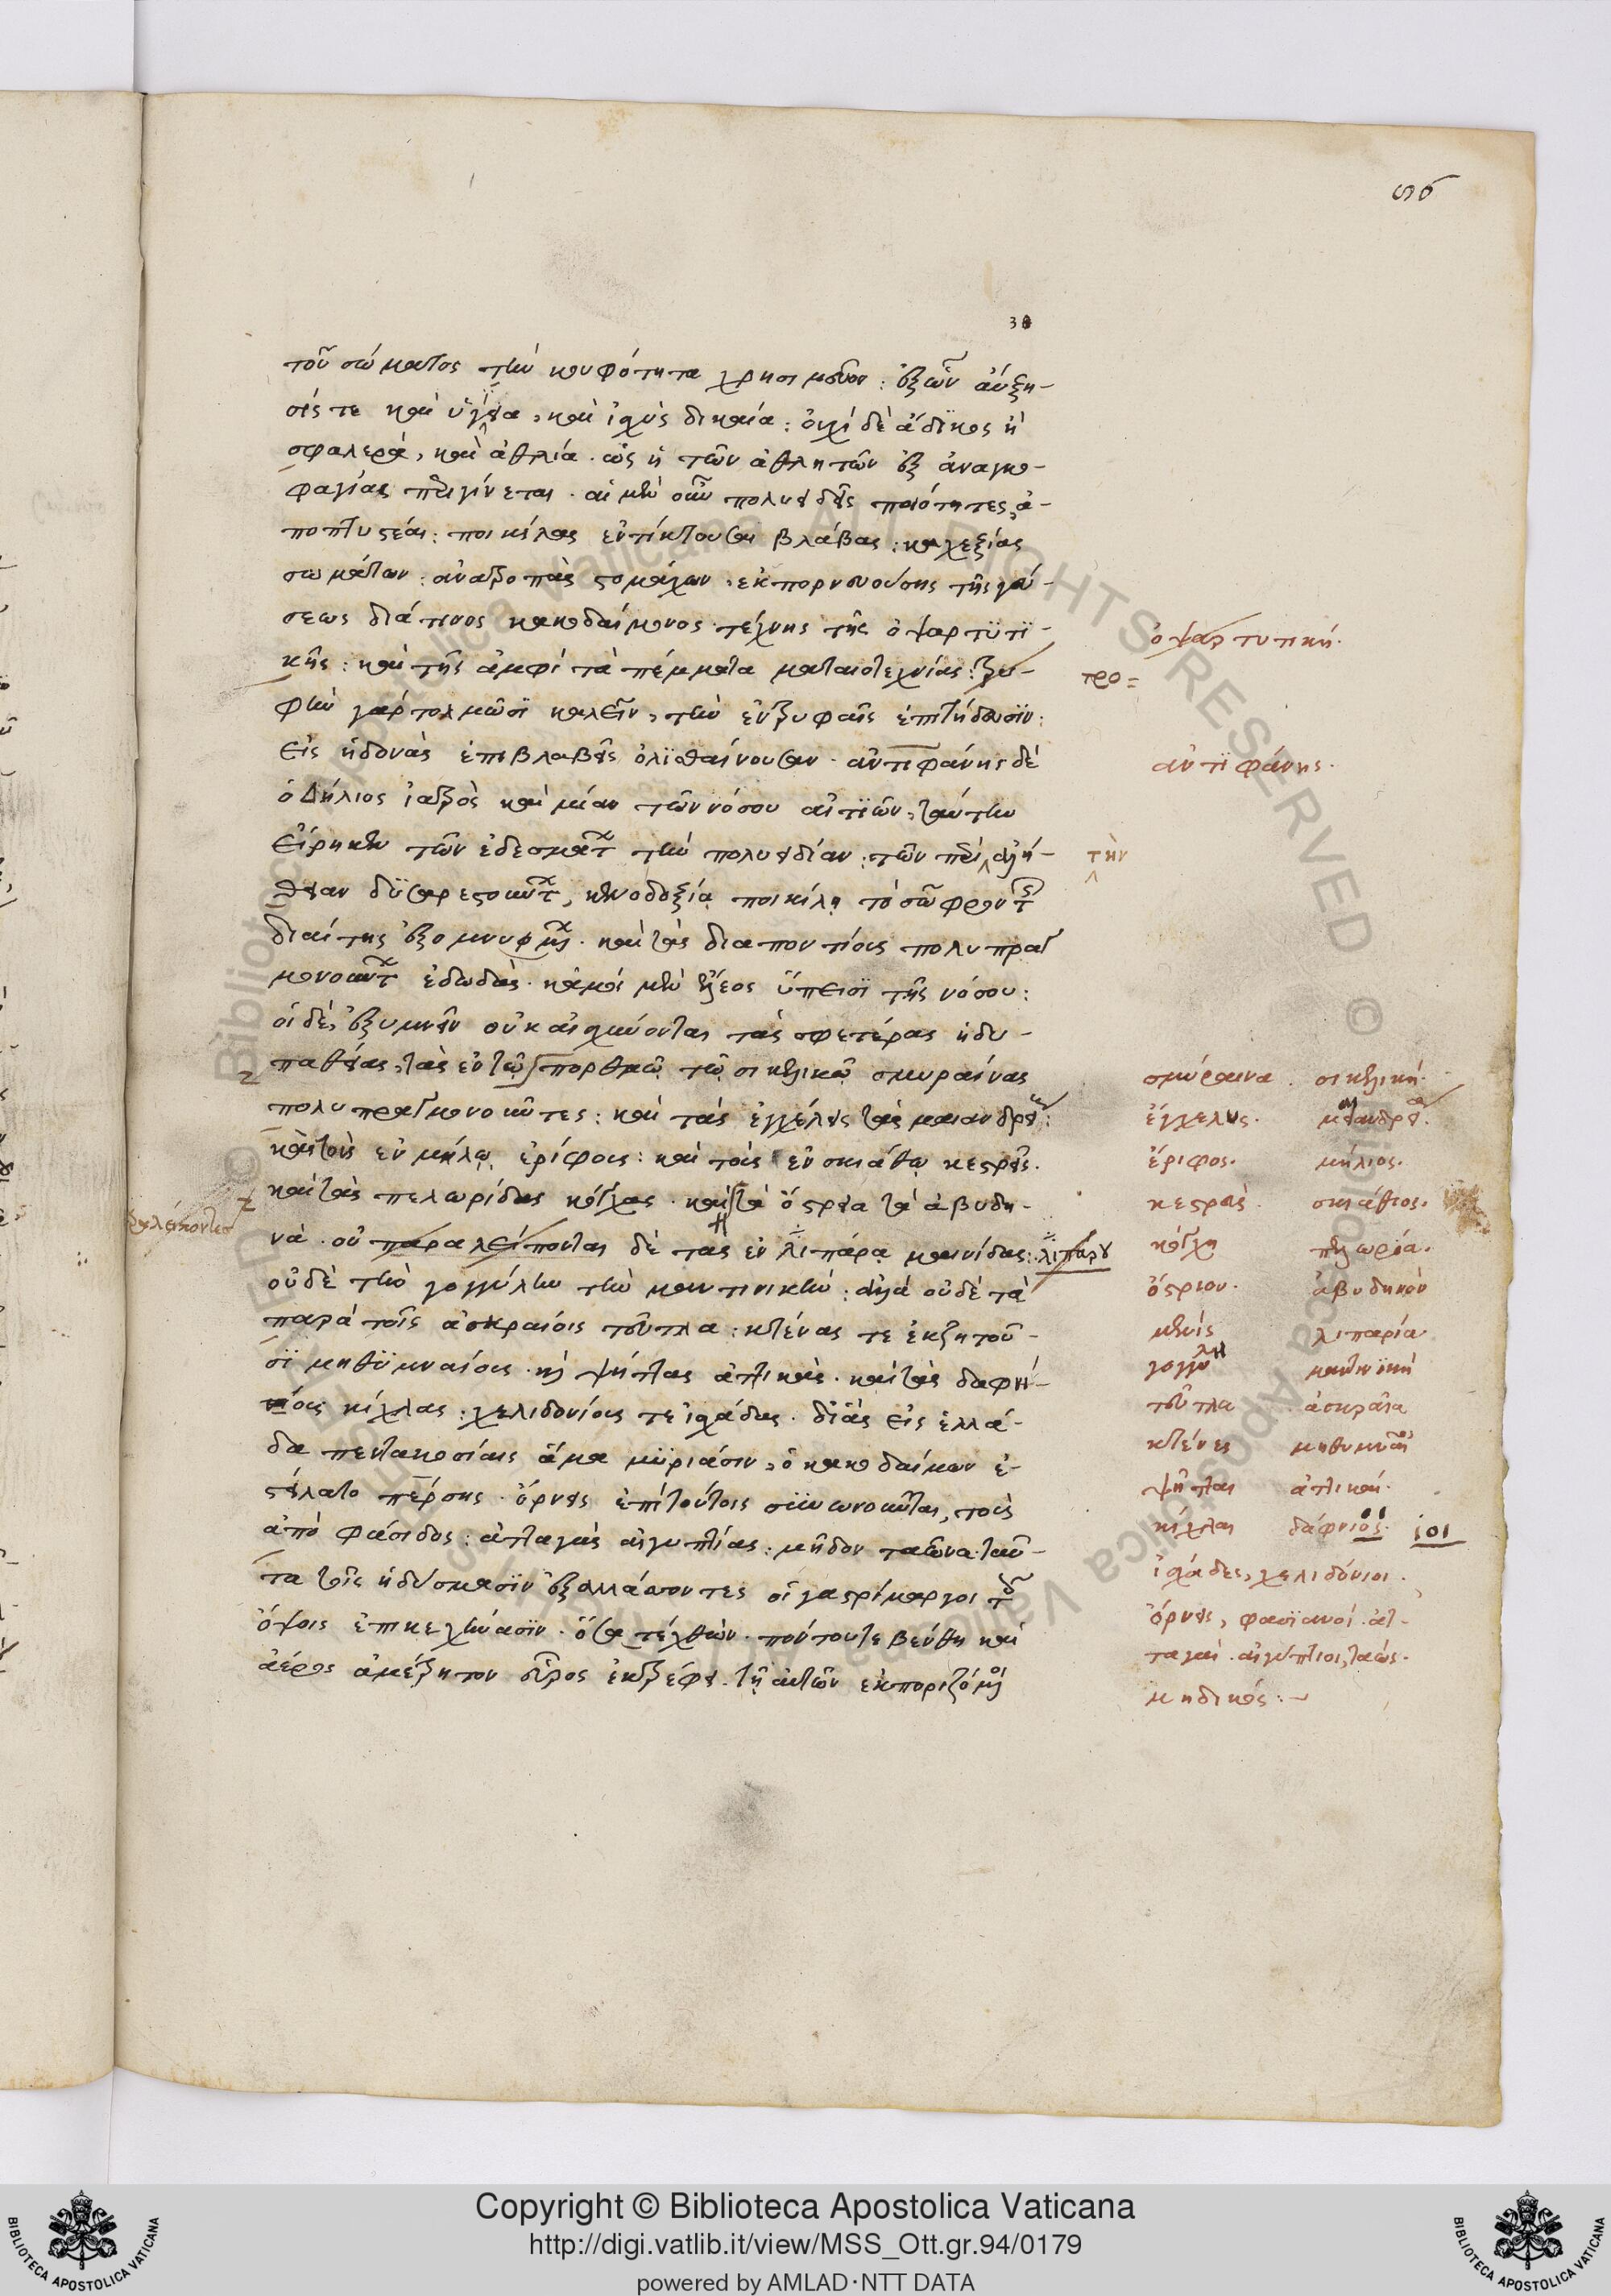 ϟϛ
38
τοῦ σώματος τὴν κουφότητα χρησιμεῦον: ἐξ ὧν αὔξη-
σίς τε καὶ ὑγίεια, καὶ ἰσχὺς δικαία: οὐχὶ δὲ ἄδικος ἢ
σφαλερὰ, καὶ ἀθλία. ὡς ἡ τῶν ἀθλητῶν ἐξ ἀναγκο-
φαγίας περιγίνεται. αἱ μὲν οὖν πολυειδεῖς ποιότητες, ἀ-
ποπτυστέαι: ποικίλας ἐντίκτουσαι βλάβας: καχεξίας
σωμάτων: ἀνατροπὰς στομάχων, ἐκπορνευούσης τῆς γεύ-
σεως διά τινος κακοδαίμονος τέχνης τῆς ὀψαρτυτι-
κῆς: καὶ τῆς ἀμφὶ τὰ πέμματα ματαιοτεχνίας: τρυ-
φὴν γὰρ τολμῶσι καλεῖν, τὴν ἐν τρυφαῖς ἐπιτήδευσιν:
εἰς ἡδονὰς ἐπιβλαβεῖς ὀλισθαίνουσαν. ἀντιφάνης δὲ
ὁ Δήλιος ἰατρὸς καὶ μίαν τῶν νόσου αἰτιῶν, ταύτην
εἴρηκεν τῶν ἐδεσμάτ τὴν πολυειδίαν: τῶν περὶ ἀλή-
θειαν δυσαρεστούντ, κενοδοξίᾳ ποικίλῃ τὸ σῶφρον τ
διαίτης ἐξομνυμ. καὶ τὰς διαποντίους πολυπραγ
μονούντ ἐδωδὰς. κἀμοὶ μὲν ἔλεος ὕπεισι τῆς νόσου:
οἱ δὲ, ἐξυμνεῖν οὐκ αἰσχύνονται τὰς σφετέρας ἡδυ-
παθείας, τὰς ἐν τῷ πορθμῷ τῷ σικελικῷ σμυραίνας
πολυπραγμονοῦντες: καὶ τὰς ἐγχέλεις τὰς μαιανδρ:
καὶ τοὺς ἐν μήλῳ ἐρίφους: καὶ τοὺς ἐν σκιάθῳ κεστρεῖς.
καὶ τὰς πελωρίδας κόγχας. καὶ τὰ ὄστρεια τὰ ἀβυδη-
νὰ. οὐ παραλείπονται δὲ τὰς ἐν λιπάρᾳ μαινίδας:
οὐδὲ τὴν γογγύλην τὴν μαντινικὴν: ἀλλὰ οὐδὲ τὰ
παρὰ τοῖς ἀσκραίοις τεῦτλα: κτένας τε ἐκζητοῦ-
σι μηθυμναίους. κ ψήττας ἀττικὰς. καὶ τὰς δαφνί-
ους κίχλας: χελιδονίους τε ἰσχάδας. δι᾽ ἃς εἰς ἑλλά-
δα πεντακοσίαις ἅμα μυριάσιν, ὁ κακοδαίμων ἐ-
στείλατο πέρσης. ὄρνεις ἐπὶ τούτοις συνωνοῦνται, τοὺς
ἀπὸ φάσιδος: ἀτταγὰς αἰγυπτίας: μῆδον ταῶνα. ταῦ-
τα τοῖς ἡδύσμασιν ἐξαλλάττοντες οἱ γαστρίμαργοι τ
ὄψοις ἐπικεχήνασιν. ὅσα τε χθὼν. πόντου τε βένθη καὶ
ἀέρος ἀμέτρητον εὖρος ἐκτρέφει. τῇ αὐτῶν ἐκποριζόμ
ὀψαρτυτική.
προ=
ἀντιφάνης.
τὴν
σμύραινα. σικελική.
ἔγχελυς. μαιανδρ.
ἔριφος. μήλιος.
κεστρεὺς. σκιάθιος.
κόγχη πελωρία.
ὄστριον. ἀβυδηνὸν
μαινὶς λιπαρία
γογγύλη μαντινικὴ
τεῦτλα ἀσκραῖα
κτένες μηθυμναῖ
ψῆτται ἀττικαί.
κίχλαι δάφνιοι. ιοι
ἰσχάδες, χελιδόνιοι.
ὄρνεις, φασιανοί. ἀτ-
ταγαὶ. αἰγύπτιοι, ταὼς.
μηδικός:
λιπάρου